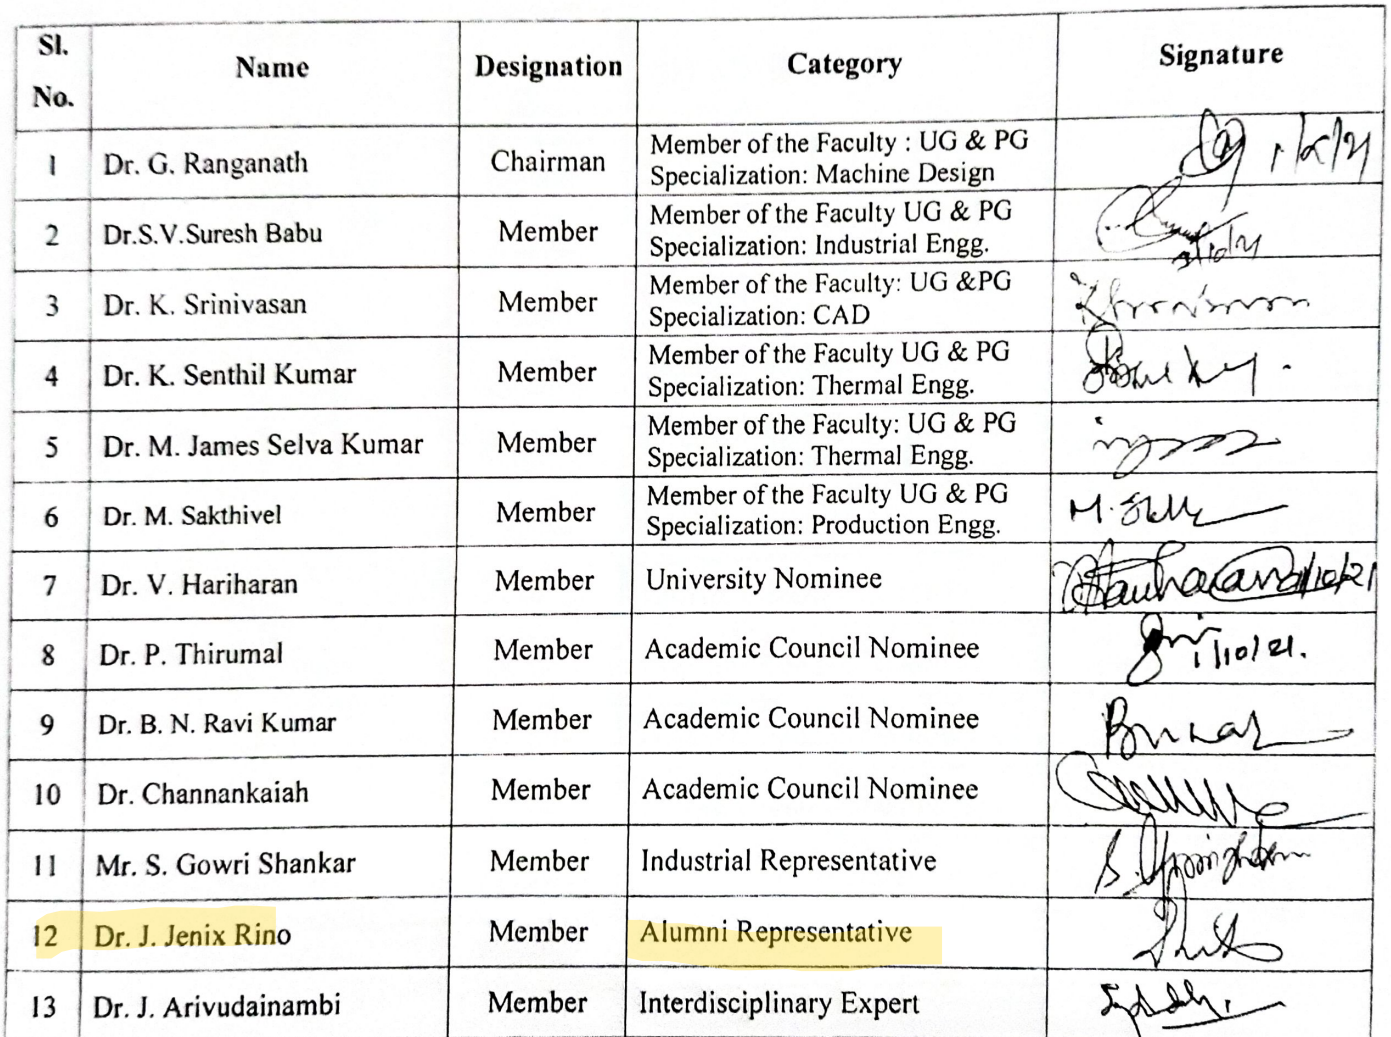 Sl. No. Name Designation Category Signature
1 Dr. G. Ranganath Chairman Member of the Faculty : UG & PG
Specialization: Machine Design
2 Dr.S.V.Suresh Babu Member Member of the Faculty UG & PG
Specialization: Industrial Engg.
3 Dr. K. Srinivasan Member Member of the Faculty: UG &PG
Specialization: CAD
4 Dr. K. Senthil Kumar Member Member of the Faculty UG & PG
Specialization: Thermal Engg.
5 Dr. M. James Selva Kumar Member Member of the Faculty: UG & PG
Specialization: Thermal Engg.
6 Dr. M. Sakthivel Member Member of the Faculty UG & PG
Specialization: Production Engg.
7 Dr. V. Hariharan Member University Nominee
8 Dr. P. Thirumal Member Academic Council Nominee 1/10/21.
9 Dr. B. N. Ravi Kumar Member Academic Council Nominee
10 Dr. Channankaiah Member Academic Council Nominee
11 Mr. S. Gowri Shankar Member Industrial Representative
12 Dr. J. Jenix Rino Member Alumni Representative
13 Dr. J. Arivudainambi Member Interdisciplinary Expert